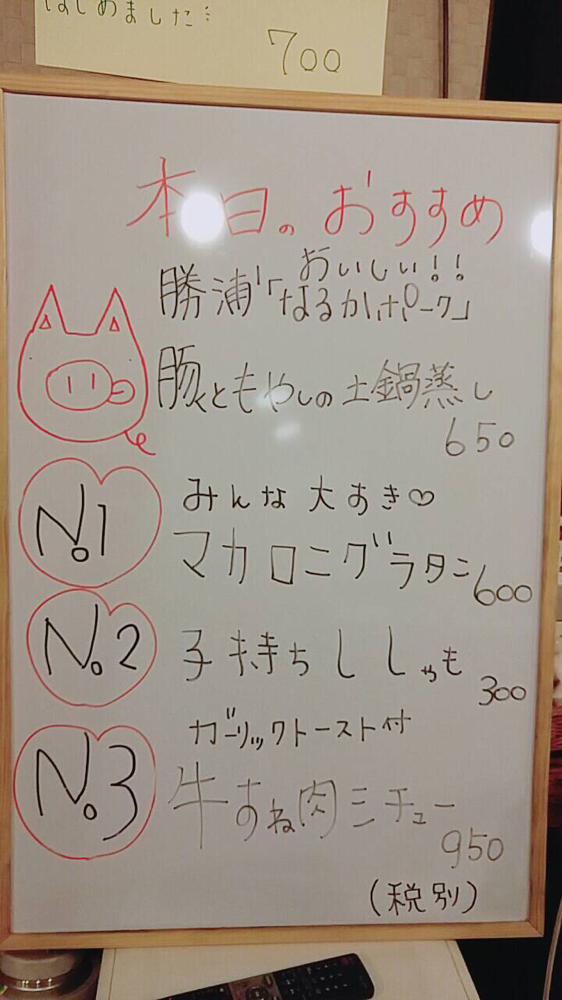 はじめました…
700
本日のおすすめ
おいしい!!
勝浦「なるかポーク」
豚ともやしの土鍋蒸し
650
No.1
みんな大すき♡
マカロニグラタン 600
No.2
子持ちししゃも
300
ガーリックトースト付
No.3
牛すね肉シチュー
950
(税別)